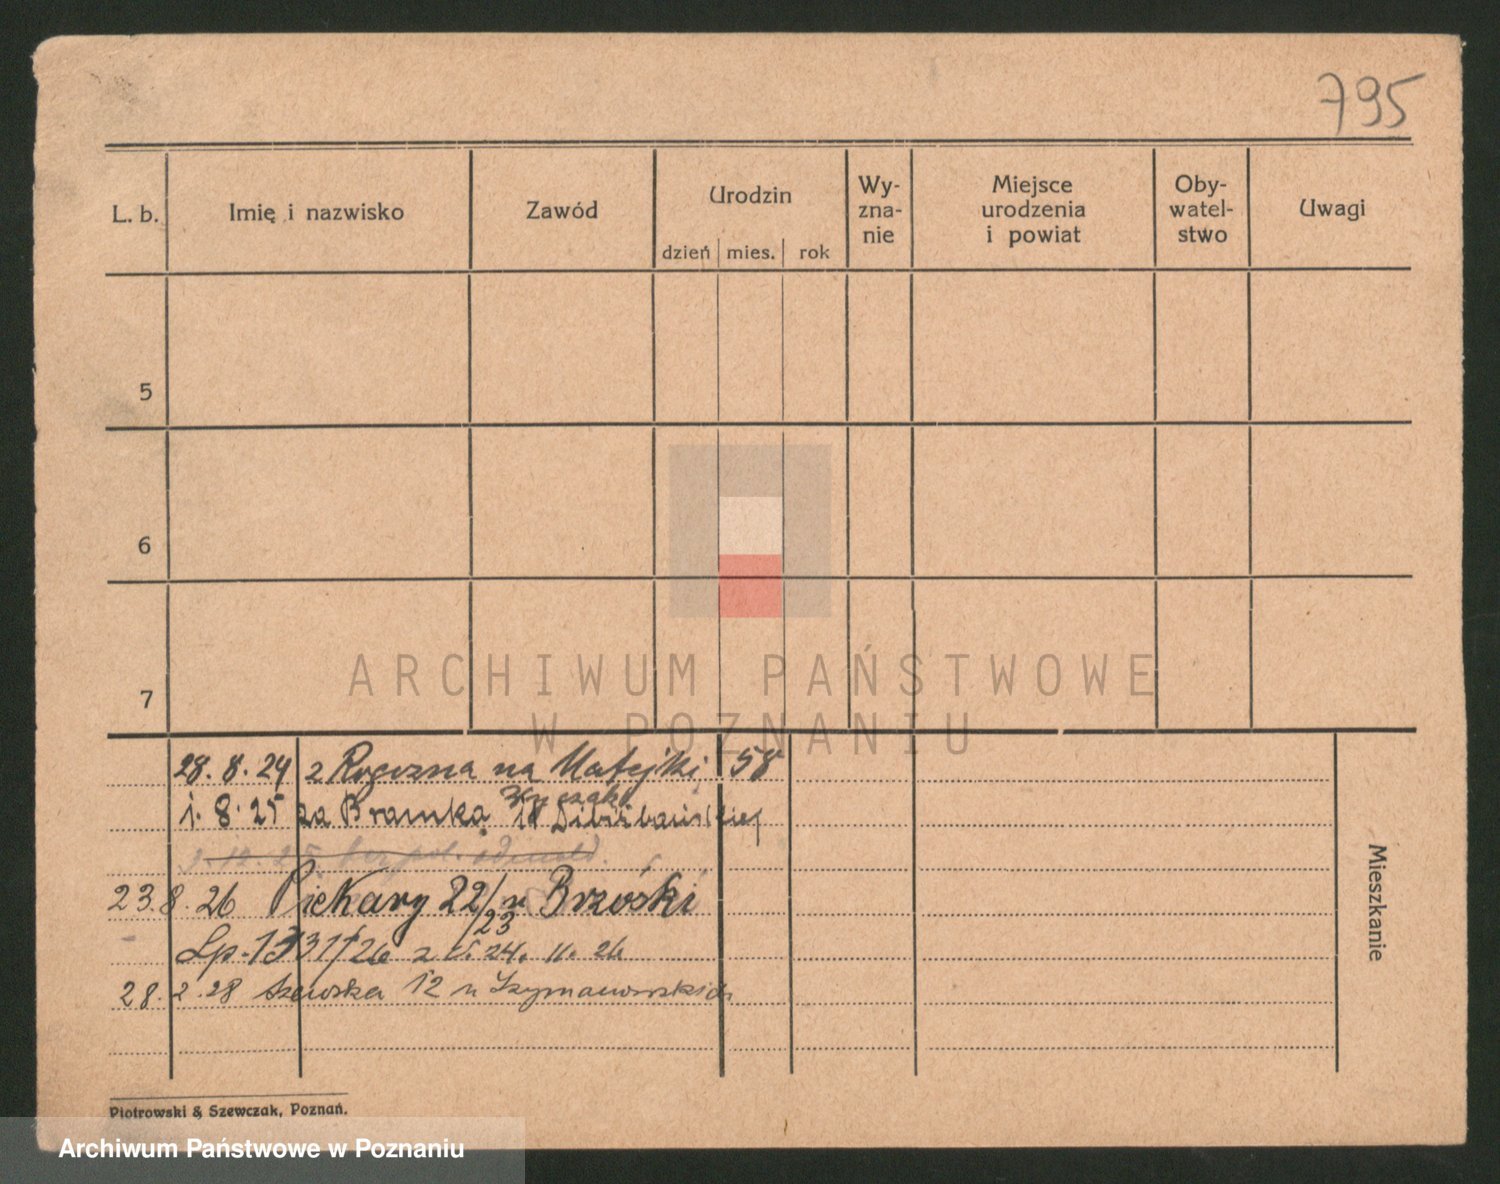 795
L. b. Imię i nazwisko Zawód Urodzin Wy-zna-nie Miejsce urodzenia i powiat Oby-watel-stwo Uwagi
dzień mies. rok
5
6
7
ARCHIWUM PAŃSTWOWE
W POZNANIU
28. 8. 24 z Rogozna na Matejki 58
1. 8. 25 za Bramką 18
23. 8. 26 Piekary 22/23 u Brzóski
Lp. 1331/26 z d. 24. 11. 26
28. 2. 28 Szewska 12 u Szymanowskich
Mieszkanie
Piotrowski & Szewczak, Poznań.
Archiwum Państwowe w Poznaniu